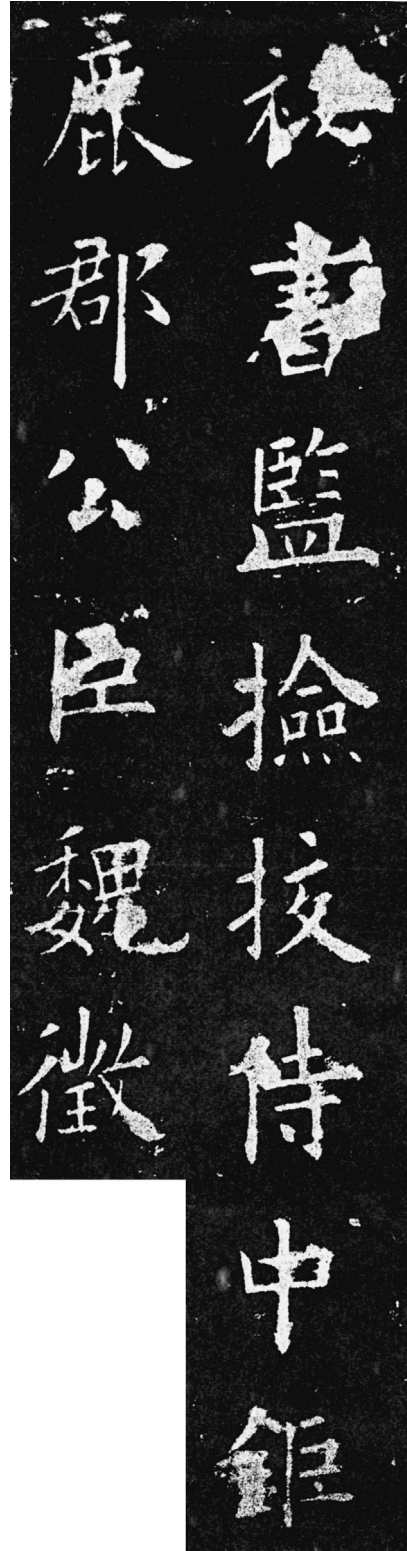 秘書監撿挍侍中鉅
鹿郡公臣魏徵